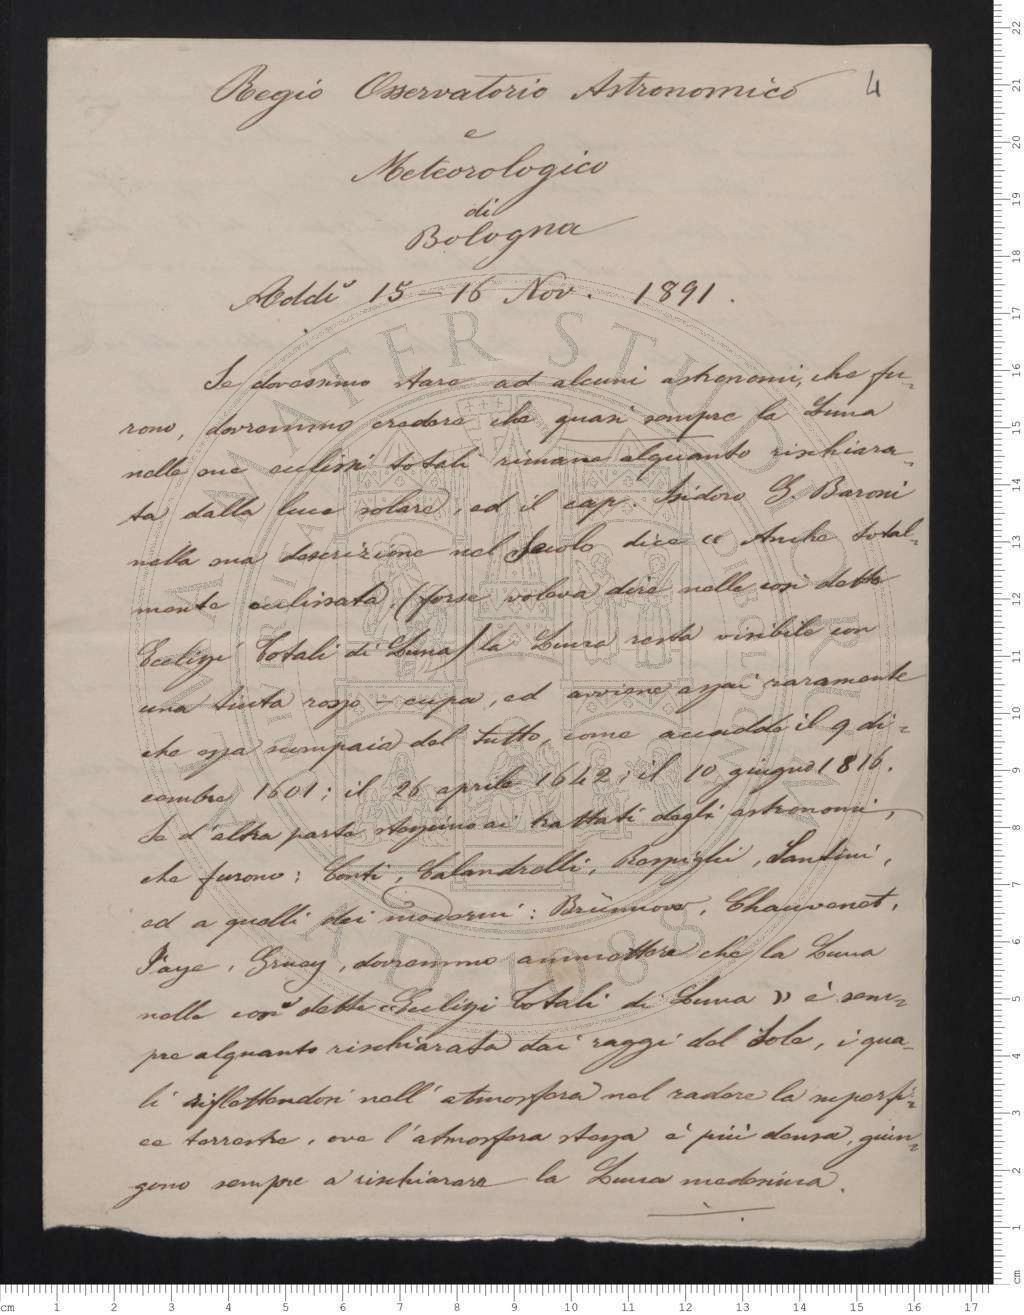 4
Regio Osservatorio Astronomico
e
Meteorologico
di
Bologna
Addì 15-16 Nov. 1891.
Se dovessimo stare ad alcuni astronomi, che fu-
rono, dovremmo credere che quasi sempre la Luna
nelle sue eclissi totali rimane alquanto rischiara-
ta dalla luce solare, ed il cap. Isidoro G. Baroni
nella sua descrizione nel Secolo dice « Anche total-
mente eclissata, (forse voleva dire nelle così dette
Eclissi Totali di Luna) la Luna resta visibile con
una tinta rosso-cupa, ed avviene assai raramente
che essa scompaia del tutto, come accadde il 9 di-
cembre 1601; il 26 aprile 1642; il 10 giugno 1816.
Se d'altra parte stessimo ai trattati degli astronomi,
che furono: Conti, Calandrelli, Respighi, Santini,
ed a quelli dei moderni: Brünnow, Chauvenet,
Faye, Gruey, dovremmo ammettere che la Luna
nelle così dette «Eclissi Totali di Luna» è sem-
pre alquanto rischiarata dai raggi del Sole, i qua-
li riflettendosi nell'atmosfera nel radere la superfi-
ce terrestre, ove l'atmosfera stessa è più densa, giun-
gono sempre a rischiarare la Luna medesima.
ALMA MATER STUDIORUM
A.D. 1088